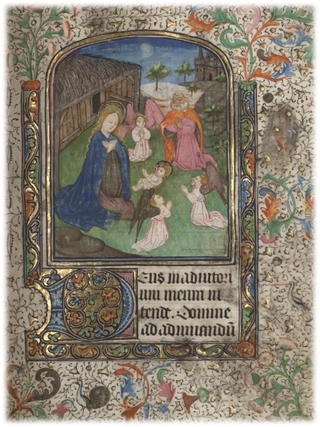 DEus in adiutori
um meum in
tende. Domine
ad adiuuandū